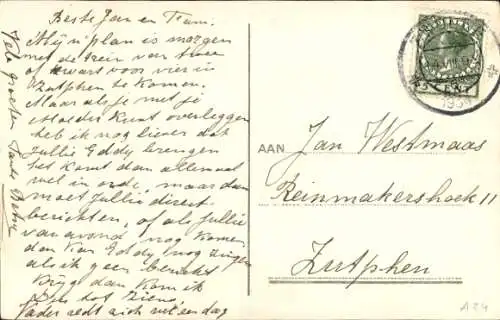 Beste Jan en Fam.
Mijn plan is morgen
met de trein van twee
of kwart voor vier in
Zutphen te komen.
Maar als je met je
Moeder kunt overleggen
heb ik nog liever dat
jullie Eddy brengen
het komt dan allemaal
wel in orde, maar dan
moet jullie direct
berichten, of als jullie
van avond nog komen
dan kan Eddy nog zingen
als ik geen bericht
krijg dan kom ik
dus tot ziens
Vader redt zich wel een dag
Vele groeten Tante
AAN
Jan Westmaas
Reinmakershoek 11
Zutphen
1934
A 24